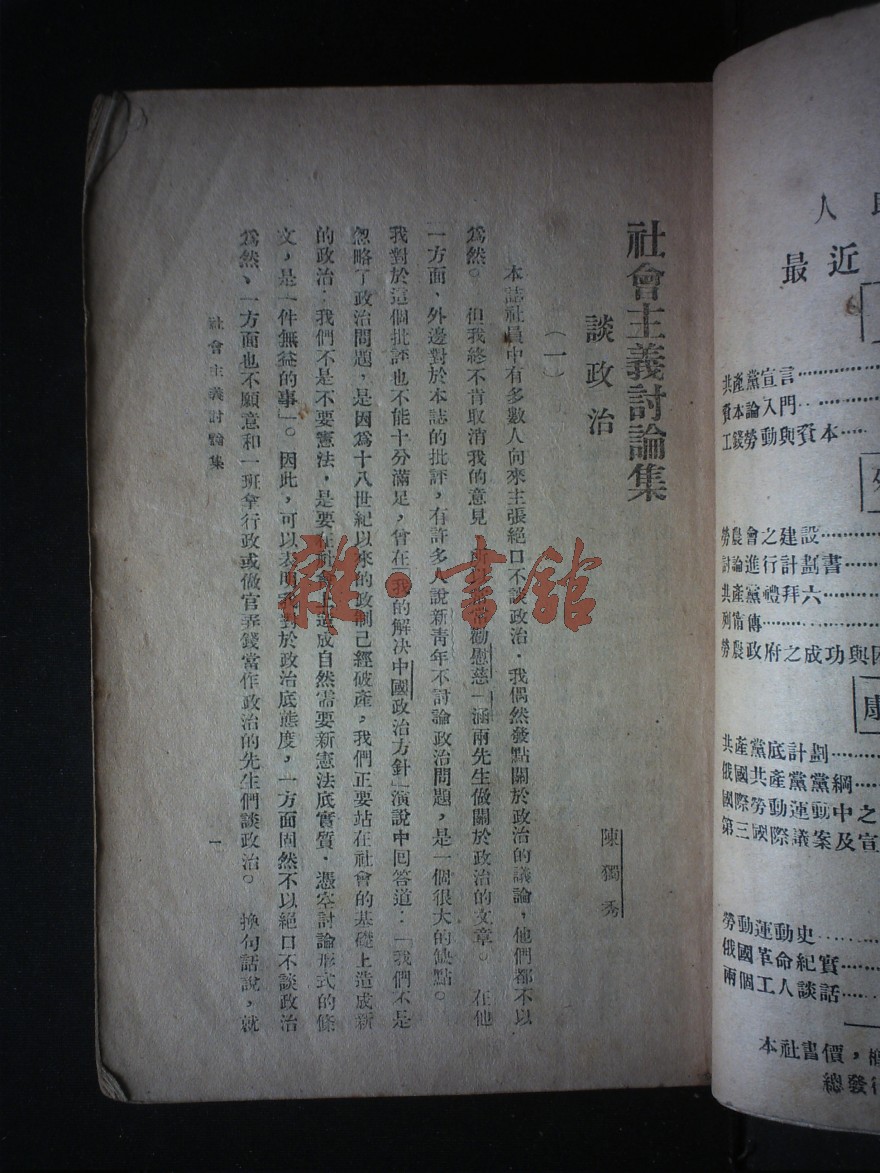 社會主義討論集
談政治
陳獨秀
（一）
本誌社員中有多數人向來主張絕口不談政治，我偶然發點關於政治的議論，他們都不以
爲然。但我終不肯取消我的意見，所以常常勸慰慈一涵兩先生做關於政治的文章。在他
一方面，外邊對於本誌的批評，有許多人說新青年不討論政治問題，是一個很大的缺點。
我對於這個批評也不能十分滿足，曾在「我的解決中國政治方針」演說中回答道：「我們不是
忽略了政治問題，是因爲十八世紀以來的政制已經破產，我們正要站在社會的基礎上造成新
的政治；我們不是不要憲法，是要在社會上造成自然需要新憲法底實質，憑空討論形式的條
文，是一件無益的事」。因此，可以表明我對於政治底態度，一方面固然不以絕口不談政治
爲然、一方面也不願意和一班拿行政或做官弄錢當作政治的先生們談政治。換句話說，就
社會主義討論集
一
雜·書館
人
最近
共產黨宣言
資本論入門
工錢勞動與資本
勞農會之建設
討論進行計劃書
共產黨禮拜六
列甯傳
勞農政府之成功與
康
共產黨底計劃
俄國共產黨黨綱
國際勞動運動中之
第三國際議案及宣
勞動運動史
俄國革命紀實
兩個工人談話
本社書價，
總發行